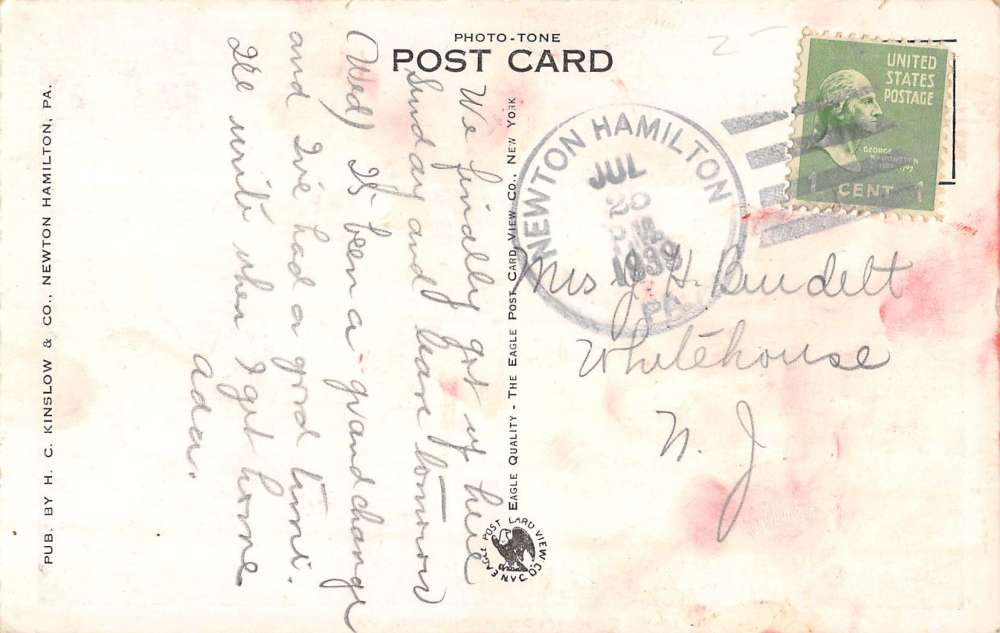 PHOTO-TONE
POST CARD
UNITED
STATES
POSTAGE
GEORGE
WASHINGTON
1 CENT 1
NEWTON HAMILTON
JUL
1939
PA.
We finally got up here
Sunday and leave tomorrow
(Wed) It's been a grand change
and I've had a good time.
I'll write when I get home
Ada.
Mrs J. H. Burdett
Whitehouse
N. J.
PUB. BY H. C. KINSLOW & CO., NEWTON HAMILTON, PA.
EAGLE QUALITY - THE EAGLE POST CARD VIEW CO., NEW YORK
AN EAGLE POST CARD VIEW CO.